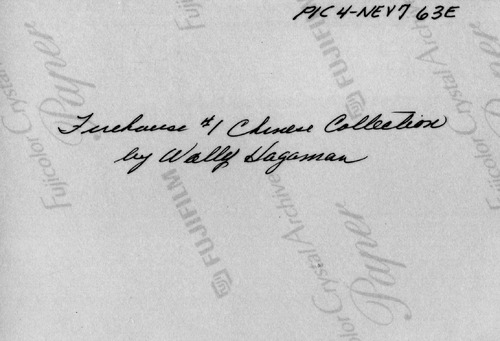 PIC 4-NEV7 63E
Firehouse #1 Chinese Collection
by Wally Hagaman
Fujicolor Crystal Archive
Paper
FUJIFILM
Fujicolor Crystal Archive
Paper
FUJIFILM
Fujicolor Crystal Archive
Paper